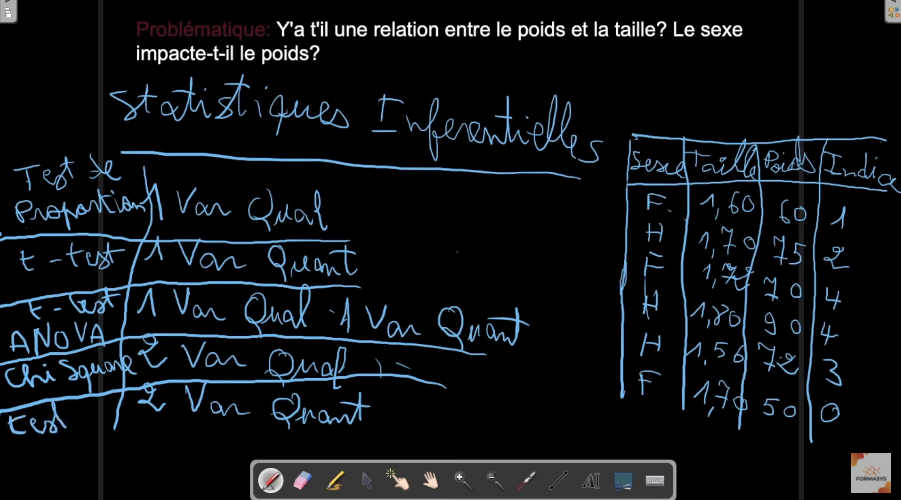 Problématique: Y'a t'il une relation entre le poids et la taille? Le sexe
impacte-t-il le poids?
Statistiques Inferentielles
Test de
Proportion 1 Var Qual
t-test 1 Var Quant
t-test
ANOVA 1 Var Qual 1 Var Quant
Chi Square 2 Var Qual
test 2 Var Quant
Sexe Taille Poids Indice
F 1,60 60 1
H 1,70 75 2
F 70 4
H 1,80 90 4
H 1,56 72 3
F 1,70 50 0
AI
FORMASYS